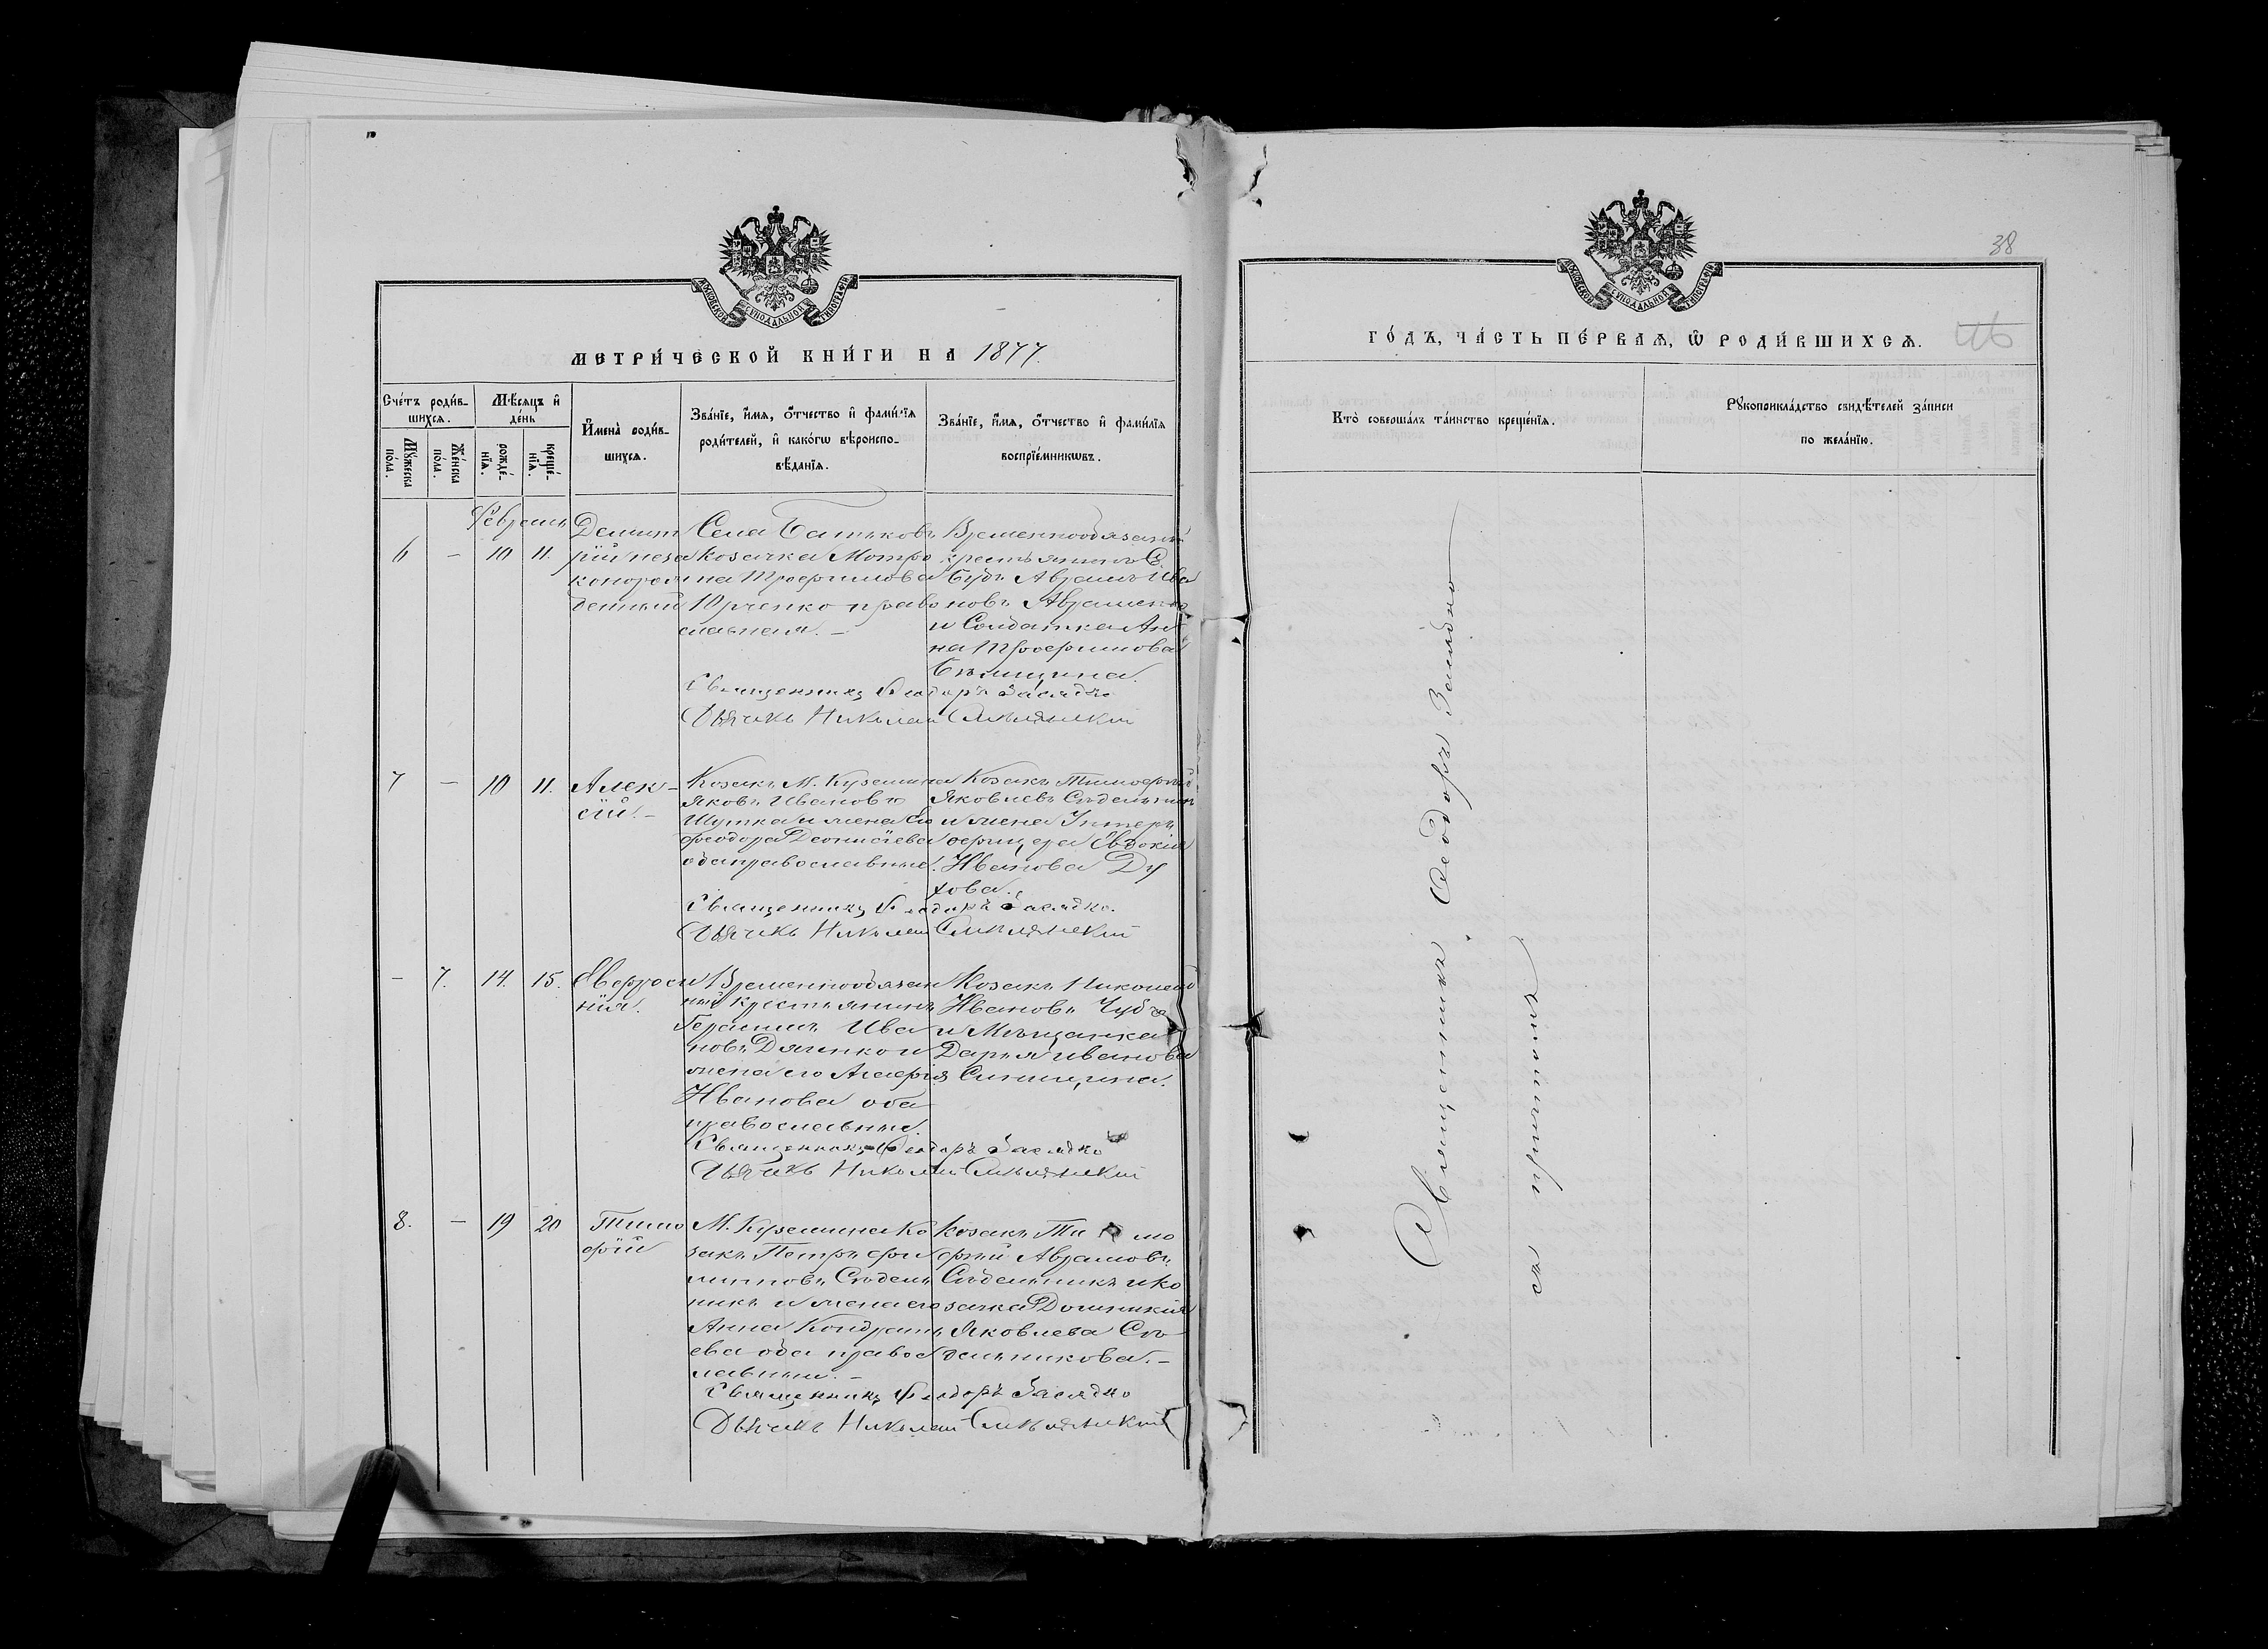 МОСКОВСКОЙ СѴНОДАЛЬНОЙ ТИПОГРАФІИ
МЕТРИ́ЧЕСКОЙ КНИ́ГИ НА 1877.
Сче́тъ роди́в-
шихсѧ.
Мꙋ́жеска
по́ла.
Же́нска
по́ла.
Мѣ́сѧцъ и҆
де́нь
рожде́-
нїѧ.
креще́-
нїѧ.
И҆мена̀ роди́в-
шихсѧ.
Зва́нїе, и҆́мѧ, ѻ҆́тчество и҆ фами́лїѧ
роди́телей, и҆ како́гѡ вѣроиспо-
вѣ́данїѧ.
Зва́нїе, и҆́мѧ, ѻ҆́тчество и҆ фами́лїѧ
воспрїе́мникѡвъ.
Февраль
6 — 10 11.
Димит
рій неза
конорож
денный
Села Батьковъ
козачка Мотро
на Трофимова
Юрченко право
славная. —
Временнообязанный
крестьянинъ С.
Будъ Аврамъ Ива
новъ Авраменко
и Солдатка Ан
на Трофимова
Священникъ Феодоръ Заслдко
Дьячикъ Николай
7 — 10 11.
Алек-
сій. —
Козакъ М. Куземина
Яковъ Ивановъ
Шутка и жена его
Феодора Деонисіева
оба православные.
Козакъ Тимофей
Яковлевъ Съдельник
и жена Унтеръ
офицера Евдокія
Иванова Ду
хова.
Священникъ Феодоръ
Дьячикъ Николай
— 7. 14. 15.
Евфроси
нія.
Временнообязан
ный крестьянинъ
Герасимъ Ива
новъ Дяченко и
жена его Агафія
Иванова оба
православные.
Козакъ Николай
Ивановъ Чубъ
и Мѣщанка
Дарья Иванова
Синицина.
Священникъ Феодоръ
Дьячикъ Николай
8. — 19 20
Тимо
фій
М. Куземина Ко
закъ Петръ Фи
липповъ Съдель
никъ и жена его
Анна Кондрать
ева оба правос
лавные. —
Козакъ Тимо
фей Аврамовъ
Съдельникъ и ко
зачка Домникія
Яковлева Съ
дельникова. —
Священникъ Феодоръ
Дьячикъ Николай
38
МОСКОВСКОЙ СѴНОДАЛЬНОЙ ТИПОГРАФІИ
ГО́ДЪ, ЧА́СТЬ ПЕ́РВАѦ, Ѡ҆ РОДИ́ВШИХСѦ.
Кто̀ соверша́лъ та́инство креще́нїѧ.
Рꙋкоприкла́дство свидѣ́телей за́писи
по жела́нїю.
Священникъ Феодоръ
съ причтомъ